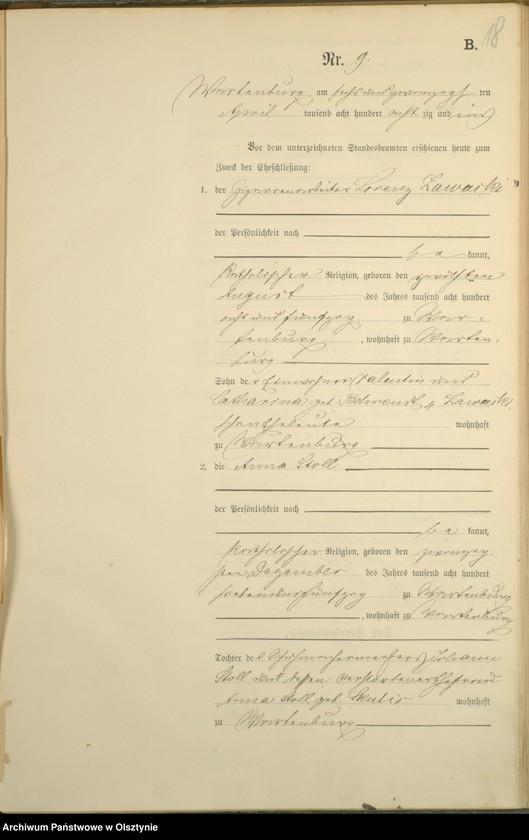 B. 18
Nr. 9.
Wartenburg am sechs und zwanzigsten
April tausend acht hundert acht zig und eins
Vor dem unterzeichneten Standesbeamten erschienen heute zum
Zweck der Eheschließung:
1. der Cigarrenarbeiter Lorenz Zawaski
der Persönlichkeit nach
be kannt,
katholischer Religion, geboren den zwölften
August des Jahres tausend acht hundert
acht und fünfzig zu War-
tenburg, wohnhaft zu Warten-
burg
Sohn der Einwohner Valentin und
Catharina geb. Zawaski-
schen Eheleute wohnhaft
zu Wartenburg
2. die Anna Stoll
der Persönlichkeit nach
be kannt,
katholischer Religion, geboren den zwanzig-
sten Dezember des Jahres tausend acht hundert
siebenundfünfzig zu Wartenburg
, wohnhaft zu Wartenburg
Tochter des Schuhmachermeisters Johann
Stoll und dessen verstorbener Ehefrau
Anna Stoll geb. wohnhaft
zu Wartenburg
Archiwum Państwowe w Olsztynie